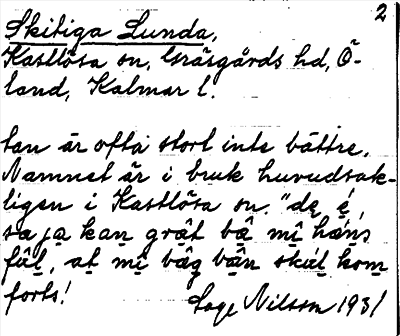 2
Skitiga Lunda,
Kastlösa sn, Gräsgårds hd, Ö-
land, Kalmar l.
tan är ofta stort inte bättre.
Namnet är i bruk huvudsak-
ligen i Kastlösa sn. "de é,
sa ja kan gråt bå mi háns
fúl, at mi båg bån skúl kom
forts! Sage Nilsson 1931